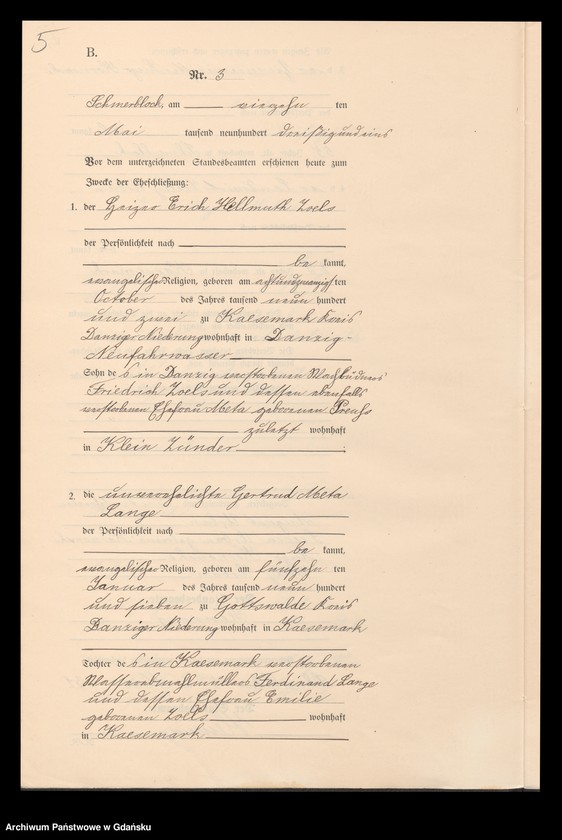 5
B.
Nr. 3
Schmerblock, am vierzehn ten
Mai tausend neunhundert dreißigundeins
Vor dem unterzeichneten Standesbeamten erschienen heute zum
Zwecke der Eheschließung:
1. der Heizer Erich Hellmuth Zoels
der Persönlichkeit nach
be kannt,
evangelischer Religion, geboren am achtundzwanzigsten
October des Jahres tausend neun hundert
und zwei zu Kaesemark Kreis
Danziger Niederung wohnhaft in Danzig-
Neufahrwasser
Sohn des in Danzig verstorbenen
Friedrich Zoels und dessen ebenfalls
verstorbenen Ehefrau Meta geborenen Preuhs
zuletzt wohnhaft
in Klein Zünder ;
2. die unverehelichte Gertrud Meta
Lange
der Persönlichkeit nach
be kannt,
evangelischer Religion, geboren am fünfzehn ten
Januar des Jahres tausend neun hundert
und sieben zu Gottswalde Kreis
Danziger Niederung wohnhaft in Kaesemark
Tochter des in Kaesemark verstorbenen
Ferdinand Lange
und dessen Ehefrau Emilie
geborenen Zolls wohnhaft
in Kaesemark
Archiwum Państwowe w Gdańsku